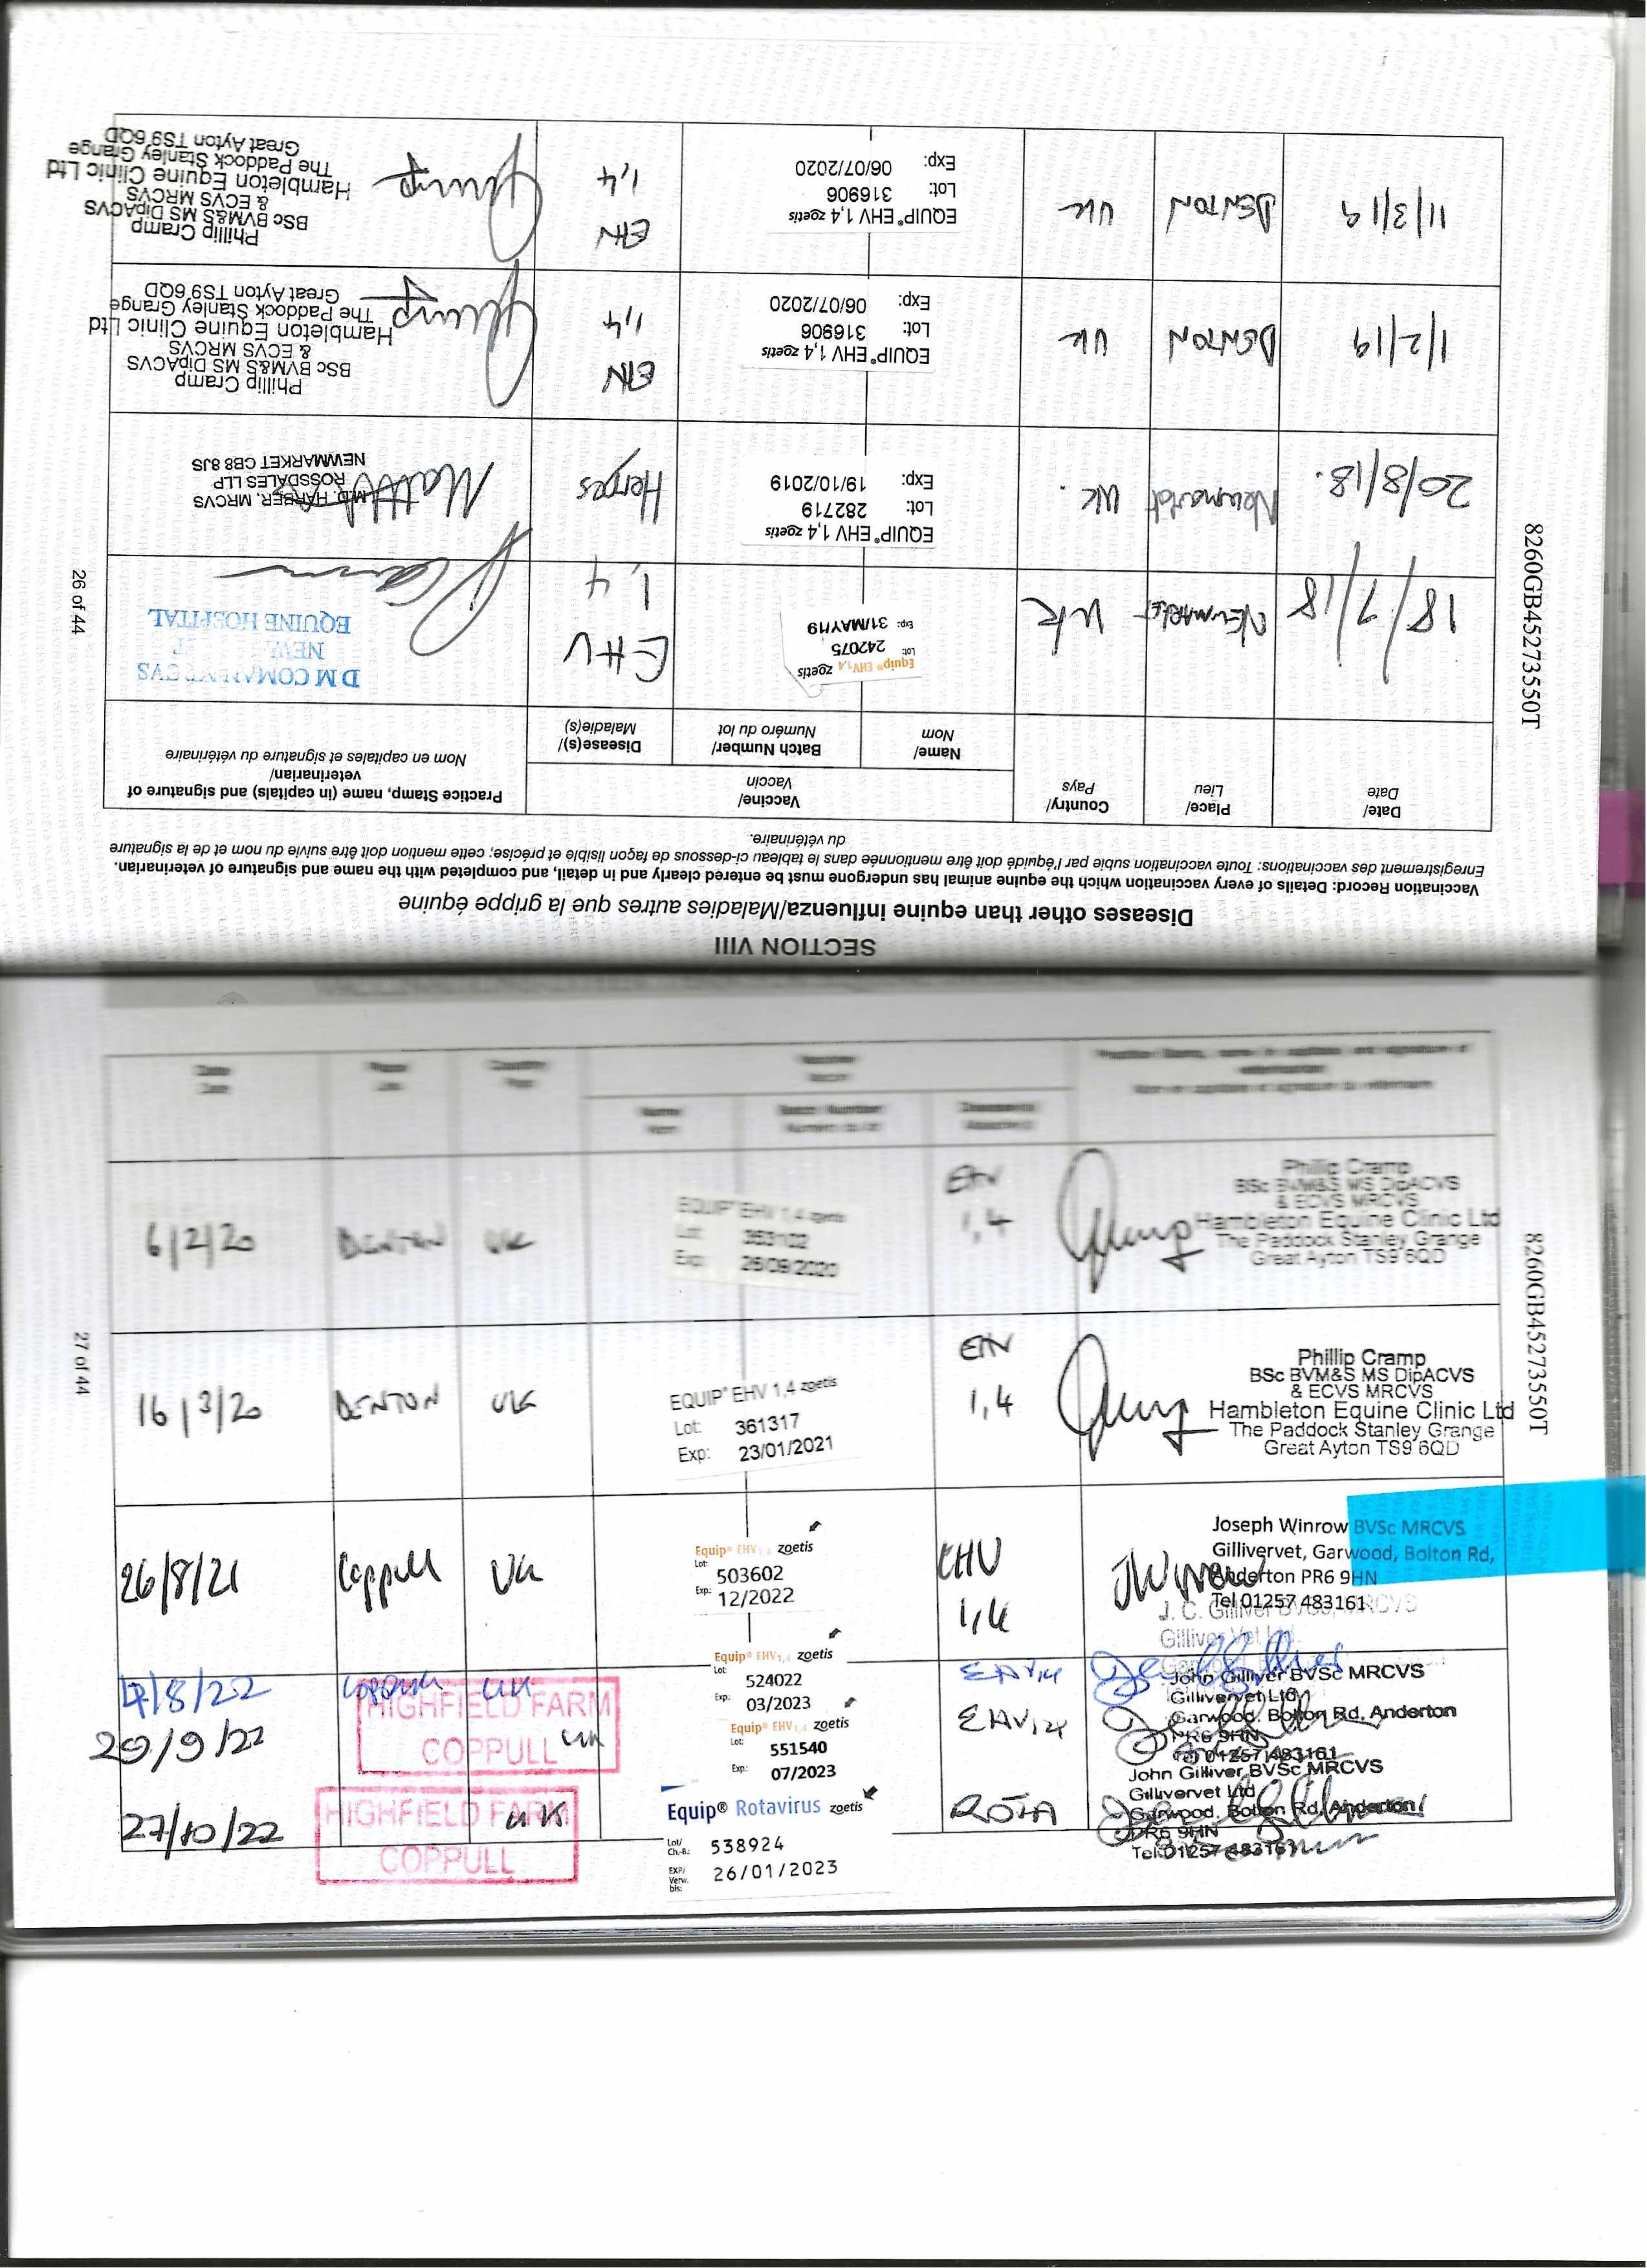 SECTION VIII
Diseases other than equine influenza/Maladies autres que la grippe équine
Vaccination Record: Details of every vaccination which the equine animal has undergone must be entered clearly and in detail, and completed with the name and signature of veterinarian.
Enregistrement des vaccinations: Toute vaccination subie par l'équidé doit être mentionnée dans le tableau ci-dessous de façon lisible et précise; cette mention doit être suivie du nom et de la signature
du vétérinaire.
Date/
Date
Place/
Lieu
Country/
Pays
Vaccine/
Vaccin
Name/
Nom
Batch Number/
Numéro du lot
Disease(s)/
Maladie(s)
Practice Stamp, name (in capitals) and signature of
veterinarian/
Nom en capitales et signature du vétérinaire
18/7/18
NEWMARKET
UK
Equip® EHV1,4 zoetis
Lot: 242075
Exp: 31/MAY/19
EHV
1,4
EQUINE HOSPITAL
20/8/18.
Newmarket
UK.
EQUIP® EHV 1,4 zoetis
Lot: 282719
Exp: 19/10/2019
Herpes
M.D. HARBER, MRCVS
ROSSDALES LLP
NEWMARKET CB8 8JS
1/2/19
DENTON
UK
EQUIP® EHV 1,4 zoetis
Lot: 316906
Exp: 06/07/2020
EHV
1,4
Phillip Cramp
BSc BVM&S MS DipACVS
& ECVS MRCVS
Hambleton Equine Clinic Ltd
The Paddock Stanley Grange
Great Ayton TS9 6QD
11/3/19
DENTON
UK
EQUIP® EHV 1,4 zoetis
Lot: 316906
Exp: 06/07/2020
EHV
1,4
Phillip Cramp
BSc BVM&S MS DipACVS
& ECVS MRCVS
Hambleton Equine Clinic Ltd
The Paddock Stanley Grange
Great Ayton TS9 6QD
26 of 44
8260GB45273550T
6/2/20
DENTON
UK
EQUIP® EHV 1,4 zoetis
Lot: 353102
Exp: 26/09/2020
EHV
1,4
Phillip Cramp
BSc BVM&S MS DipACVS
& ECVS MRCVS
Hambleton Equine Clinic Ltd
The Paddock Stanley Grange
Great Ayton TS9 6QD
16/3/20
DENTON
UK
EQUIP® EHV 1,4 zoetis
Lot: 361317
Exp: 23/01/2021
EHV
1,4
Phillip Cramp
BSc BVM&S MS DipACVS
& ECVS MRCVS
Hambleton Equine Clinic Ltd
The Paddock Stanley Grange
Great Ayton TS9 6QD
26/8/21
Coppull
UK
Equip® EHV1,4 zoetis
Lot: 503602
Exp: 12/2022
EHV
1,4
Joseph Winrow BVSc MRCVS
Gillivervet, Garwood, Bolton Rd,
Anderton PR6 9HN
Tel 01257 483161
J. C. Gilliver BVSc, MRCVS
Gilliver Vet Ltd
/8/22
Coppull
UK
Equip® EHV1,4 zoetis
Lot: 524022
Exp: 03/2023
EHV1,4
John Gilliver BVSc MRCVS
Gillivervet Ltd
Garwood, Bolton Rd, Anderton
PR6 9HN
Tel 01257 483161
29/9/22
HIGHFIELD FARM
COPPULL
UK
Equip® EHV1,4 zoetis
Lot: 551540
Exp: 07/2023
EHV1,4
John Gilliver BVSc MRCVS
Gillivervet Ltd
Garwood, Bolton Rd, Anderton
PR6 9HN
Tel 01257 483161
27/10/22
HIGHFIELD FARM
COPPULL
UK
Equip® Rotavirus zoetis
Lot/
Ch.-B.: 538924
EXP/
Verw.
bis: 26/01/2023
ROTA
27 of 44
8260GB45273550T